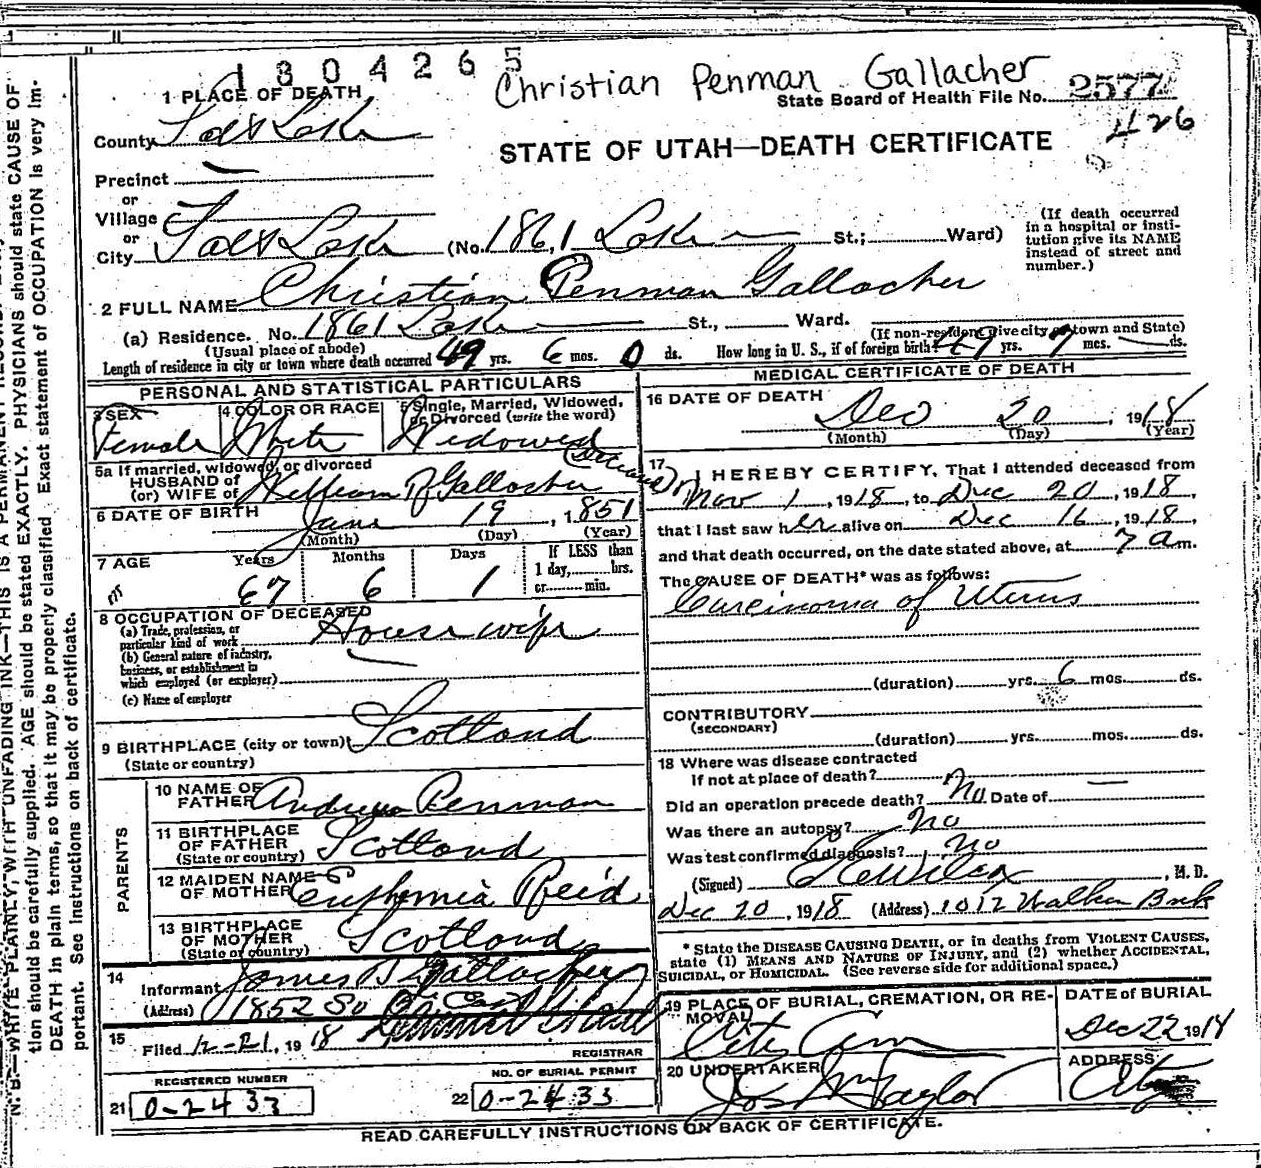 1304265
Christian Penman Gallacher
State Board of Health File No. 2577
426
STATE OF UTAH—DEATH CERTIFICATE
1 PLACE OF DEATH
County Salt Lake
Precinct
or
Village
or
City Salt Lake (No. 1861 Lake St.; Ward)
(If death occurred in a hospital or institution give its NAME instead of street and number.)
2 FULL NAME Christian Penman Gallacher
(a) Residence. No. 1861 Lake St., Ward.
(Usual place of abode) (If non-resident give city or town and State)
Length of residence in city or town where death occurred 49 yrs. 6 mos. 0 ds. How long in U. S., if of foreign birth? 49 yrs. 7 mos. — ds.
PERSONAL AND STATISTICAL PARTICULARS
3 SEX Female
4 COLOR OR RACE White
5 Single, Married, Widowed, or Divorced (write the word) Widowed
5a If married, widowed, or divorced
HUSBAND of
(or) WIFE of William P Gallacher (Deceased)
6 DATE OF BIRTH June 19, 1851
(Month) (Day) (Year)
7 AGE Years 67 Months 6 Days 1
If LESS than 1 day, hrs. or min.
8 OCCUPATION OF DECEASED
(a) Trade, profession, or particular kind of work House wife
(b) General nature of industry, business, or establishment in which employed (or employer)
(c) Name of employer
9 BIRTHPLACE (city or town) Scotland
(State or country)
PARENTS
10 NAME OF FATHER Andrew Penman
11 BIRTHPLACE OF FATHER (State or country) Scotland
12 MAIDEN NAME OF MOTHER Euphemia Reid
13 BIRTHPLACE OF MOTHER (State or country) Scotland
14 Informant James B Gallacher
(Address) 1852 So
15 Filed 12-21, 1918
REGISTRAR
REGISTERED NUMBER
21 0-2433
NO. OF BURIAL PERMIT
22 0-2433
MEDICAL CERTIFICATE OF DEATH
16 DATE OF DEATH Dec 20, 1918
(Month) (Day) (Year)
17 I HEREBY CERTIFY, That I attended deceased from
Nov 1, 1918, to Dec 20, 1918,
that I last saw her alive on Dec 16, 1918,
and that death occurred, on the date stated above, at 7 a m.
The CAUSE OF DEATH* was as follows:
Carcinoma of Uterus
(duration) yrs. 6 mos. ds.
CONTRIBUTORY
(SECONDARY)
(duration) yrs. mos. ds.
18 Where was disease contracted
If not at place of death?
Did an operation precede death? No Date of —
Was there an autopsy? No
Was test confirmed diagnosis? No
(Signed) Wilcox, M. D.
Dec 20, 1918 (Address) 1012 Walker Bnk
* State the DISEASE CAUSING DEATH, or in deaths from VIOLENT CAUSES,
state (1) MEANS AND NATURE OF INJURY, and (2) whether ACCIDENTAL,
SUICIDAL, or HOMICIDAL. (See reverse side for additional space.)
19 PLACE OF BURIAL, CREMATION, OR REMOVAL City Cem
DATE of BURIAL Dec 22 1918
20 UNDERTAKER Jos Wm Taylor
ADDRESS City
READ CAREFULLY INSTRUCTIONS ON BACK OF CERTIFICATE.
N. B.—WRITE PLAINLY, WITH UNFADING INK—THIS IS A PERMANENT RECORD.
tion should be carefully supplied. AGE should be stated EXACTLY. PHYSICIANS should state CAUSE OF
DEATH in plain terms, so that it may be properly classified. Exact statement of OCCUPATION is very im-
portant. See instructions on back of certificate.